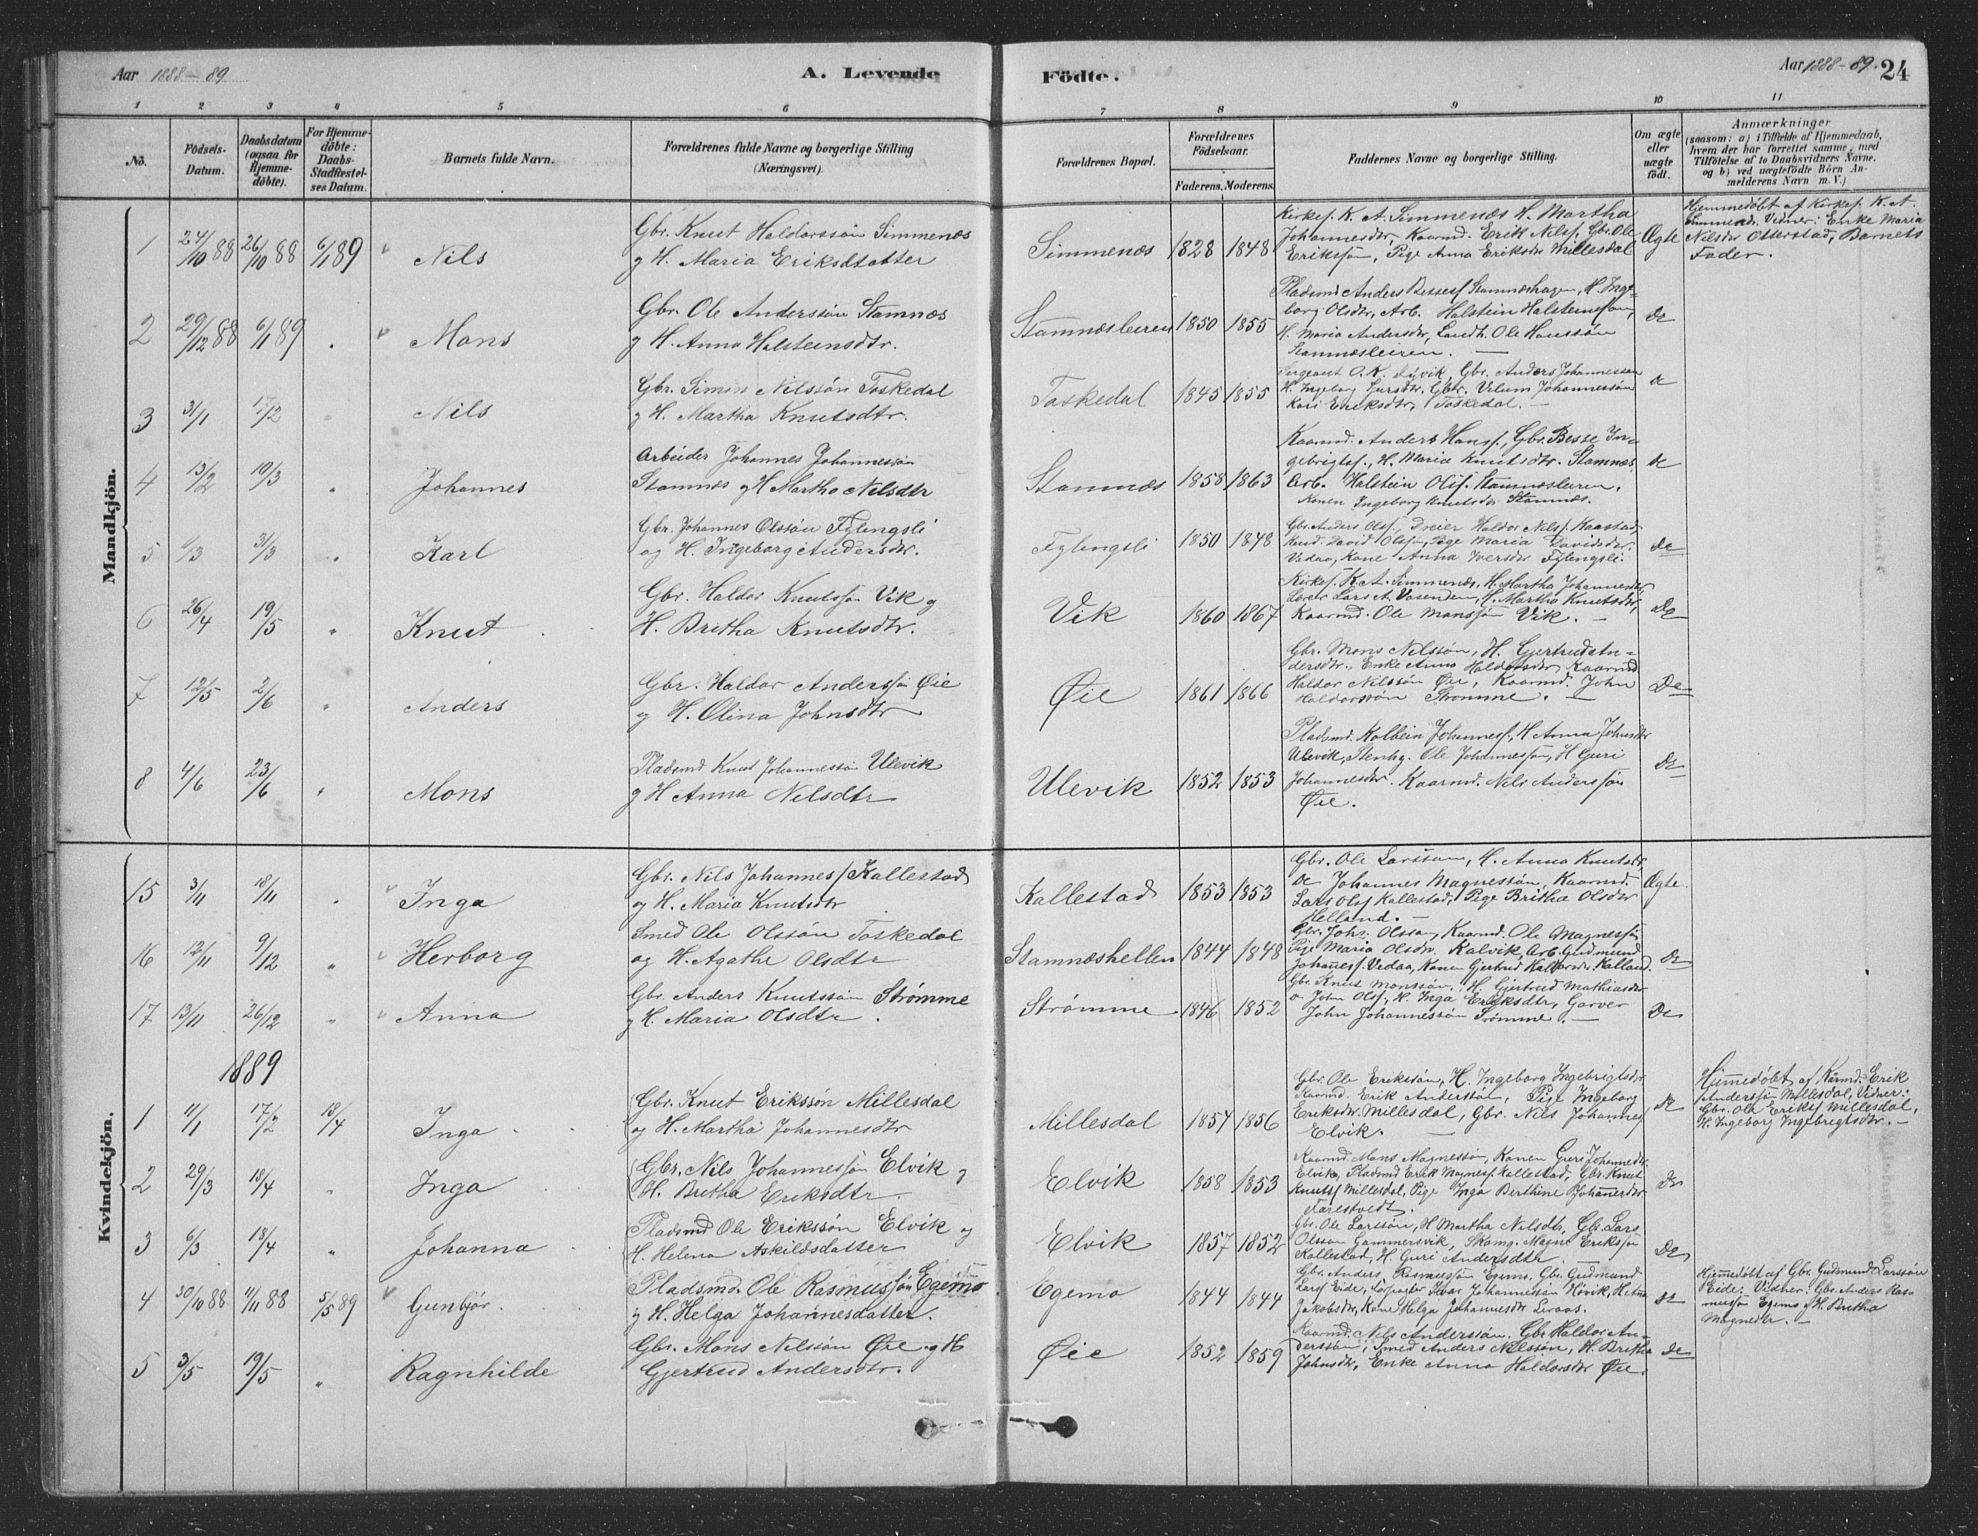 Aar 1888-89
A. Levende
Födte.
Aar 1888-89. 24
1 2 3 4 5 6 7 8 9 10 11
No. Födsels-Datum. Daabsdatum (ogsaa for Hjemme-döbte). For Hjemme-döbte: Daabs-Stadfæstel-ses Datum. Barnets fulde Navn. Forældrenes fulde Navne og borgerlige Stilling (Næringsvei). Forældrenes Bopæl. Forældrenes Födselsaar. Faderens. Moderens. Faddernes Navne og borgerlige Stilling. Om ægte eller uægte födt. Anmærkninger (saasom: a) i Tilfælde af Hjemmedaab, hvem der har forrettet samme, med Tilföielse af to Daabsvidners Navne, og b) ved uægtefödte Börn An-melderens Navn m. V.)
Mandkjön.
1 24/10 88 26/10 88 6/1 89 Nils
Gbr. Knut Haldorssön Simmenæs
og H. Maria Eriksdatter
Simmenæs 1828 1848
Kirkes. K. A. Simmenæs H. Martha
Johannesdtr, Kaarmd. Erik Nilss. Gbr. Ole
Erikssön, Pige Anna Eriksdtr Millesdal
Ægte
Hjemmedöbt af Kirkes. K. A.
Simmenæs. Vidner: Enke Maria
Nilsdtr Otterstad, Barnets
Fader.
2 29/12 88 6/1 89 Mons
Gbr. Ole Anderssön Stamnæs
og H. Anna Halsteinsdtr.
Stamnæsleeren 1850 1855
Pladsmd Anders Besses. Stamnæshagen, H. Inge-
borg Olsdtr, Arb. Halstein Halsteinssön,
H. Maria Andersdtr, Landh. Ole Hanssön
Stamnæsleeren.
de
3 31/1 17/2 Nils
Gbr. Simon Nilssön Toskedal
og H. Martha Knutsdtr.
Toskedal 1845 1855
Sergeant O. K. Dyvik, Gbr. Anders Johannesson
H. Ingeborg Sjursdtr, Gbr. Vilum Johannessön
Kari Eriksdtr, Toskedal.
de
4 13/2 10/3 Johannes
Arbeider Johannes Johannessön
Stamnæs og H Martha Nilsdtr
Stamnæs 1858 1863
Kaarmd. Anders Hans., Gbr. Besse In-
gebrigts., H. Maria Knutsdtr. Stamnæs,
Arb. Halstein Olss. Stamnæsleeren,
Konen Ingeborg Knutsdtr Stamnæs.
de
5 6/3 31/3 Karl
Gbr. Johannes Olssön Fylingsli
og H. Ingeborg Andersdtr.
Fylingsli 1850 1848
Gbr. Anders Olss., Dreier Haldor Nilss. Kaastad,
David Olssön, Pige Maria Davidsdtr.
Vedaa, Kone Anna Iversdtr Fylingsli.
de
6 26/4 19/5 Knut
Gbr. Haldor Knutssön Vik og
H. Britha Knutsdtr.
Vik 1860 1867
Kirkes. K. A. Simmenæs, H. Martha Johannesdtr
Lærer Lars A. Vasenden, H. Martha Knutsdtr,
Kaarmd. Ole Monssön Vik.
de
7 12/5 2/6 Anders
Gbr. Haldor Anderssön Øie
og H. Olina Johnsdtr
Øie 1861 1866
Gbr. Mons Nilssön, H. Gjertrud An-
dersdtr., Enke Anna Haldorsdtr, Kaarmd
Haldor Nilssön Øie, Kaarmd. John
Haldorssön Strømme.
De
8 4/6 23/6 Mons
Pladsmd Knut Johannessön Ulevik
og H Anna Nilsdtr
Ulevik 1852 1853
Pladsmd. Kolbein Johannes., H Anna Johnsdtr
Ulevik, Stenhg. Ole Johannessön, H Guri
Johannesdtr. Kaarmd. Nils Anderssön
Øie.
de
Kvindekjön.
15 3/11 18/11 Inga
Gbr. Nils Johanness. Kallestad
og H. Maria Knutsdtr
Kallestad 1853 1853
Gbr. Ole Larsson, H. Anna Knutsdtr
De Johannes Magnessön, Kaarmd.
Lars Olss Kallestad, Pige Britha Olsdtr
Helland.
Ægte
16 12/11 9/12 Herborg
Smed Ole Olssön Toskedal
og H. Agathe Olsdtr
Stamnæshellen 1844 1848
Gbr. Johs. Olsson, Kaarmd. Ole Magnessön
Pige Maria Olsdtr, Kalvik, Arb. Gudmund
Johanness. Vedaa, Konen Gjertrud Kalland.
de
17 13/11 26/12 Anna
Gbr. Anders Knutssön Strømme
og H. Maria Olsdtr.
Strømme 1846 1852
Gbr. Knut Monssön, H. Gjertrud Mathiasdtr
John Olss, H. Inga Eriksdtr, Garver
John Johannessön Strømme.
De
1889
1 11/1 17/2 13/4 Inga
Gbr. Knut Erikssön Millesdal
og H. Martha Johannesdtr
Millesdal 1857 1856
Gbr. Ole Erikssön, H. Ingeborg Ingebrigtsdtr
Kaarmd. Erik Anderssön, Pige Ingeborg
Eriksdtr Millesdal, Gbr. Nils Johanness
Elvik.
de
Hjemmedöbt af Kårmd. Erik
Anderssön Millesdal, Vidner:
Gbr. Ole Erikss Millesdal,
H. Ingeborg Ingebrigtsdtr.
2 29/3 18/4 Inga
Gbr. Nils Johannessön Elvik og
H. Britha Eriksdtr.
Elvik 1858 1853
Kaarmd. Mons Magnessön, Konen Guri Johannesdtr,
Elvik, Pladsmd Erik Magness. Kallestad, Gbr. Knut
Knutss Millesdal, Pige Inga Berthine Johannesdtr
Farestvedt.
de
3 6/3 18/4 Johanna
Pladsmd Ole Erikssön Elvik og
H. Helena Askildsdatter
Elvik 1857 1852
Gbr. Ole Larssön, H Martha Nilsdtr, Gbr. Lars
Olsson Gammersvik, Skomg. Magne Erikssön
Kallestad, H Guri Andersdtr
De
4 30/10 88 11/11 88 5/5 89 Gunbjör.
Pladsmd. Ole Rasmussön Egemo
og H. Helga Johannesdatter.
Egemo 1844 1844
Gbr. Anders Rasmussön Egemo, Gbr. Gudmund
Larss Eide, Ivar Johannessön Hövik,
Jakobsdtr, Kone Helga Johannesdtr
de
Hjemmedöbt af Gbr. Gudmund Larssön
Eide. Vidner: Gbr. Anders Ras-
mussön Egemo, H Britha
Magnedtr.
5 3/5 19/5 Ragnhilde
Gbr. Mons Nilssön Øie og H
Gjertrud Andersdtr.
Øie 1852 1859
Kaarmd. Nils Anderssön, Gbr Haldor An-
derssön, Smed Anders Nilssön, H. Britha
Johnsdtr, Enke Anna Haldorsdtr Øie.
de